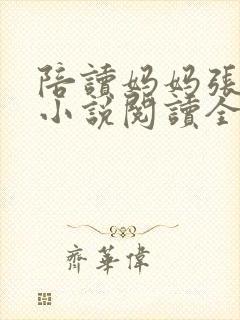 陪讀媽媽張
小說閱讀全
齊華偉